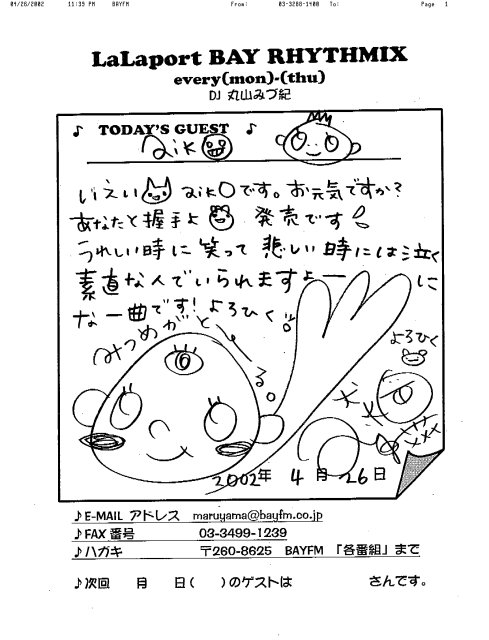 04/26/2002 11:39 PM BAYFM From: 03-3288-1408 To: Page 1
LaLaport BAY RHYTHMIX
every(mon)-(thu)
DJ 丸山みづ紀
♪ TODAY'S GUEST ♪
aiko
いえい aikoです。お元気ですか?
あなたと握手よ 発売です
うれしい時に笑って 悲しい時には泣く
素直な人でいられますよーに
な一曲です! よろひく
みつめがとーる。
よろひく
2002年 4月 26日
♪E-MAIL アドレス maruyama@bayfm.co.jp
♪FAX番号 03-3499-1239
♪ハガキ 〒260-8625 BAYFM 「各番組」まで
♪次回 月 日( )のゲストは さんです。